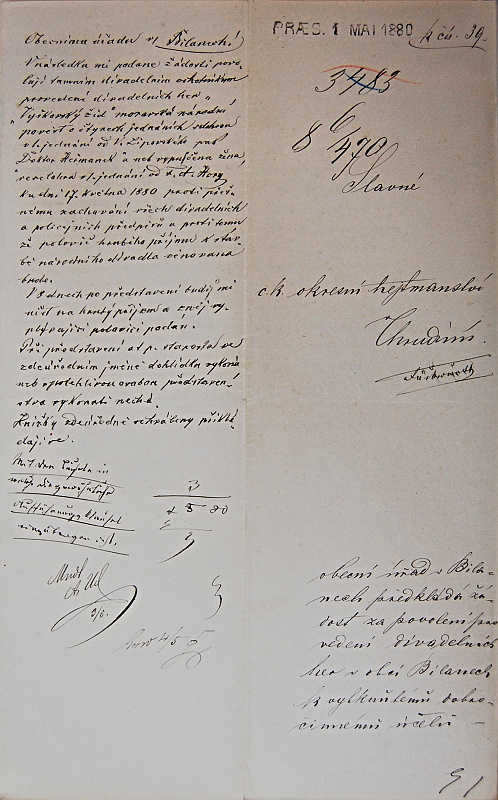 Obecnímu úřadu v Bílanech!
V následku mi podané žádosti povo-
luji tamním divadelním ochotníkům
provedení divadelních her „
Výškovský žid" moravská národní
pověst o čtyrech jednáních
v 1. jednání od
Doktor Heimanek a neb vypůjčená žena,
veselohra v 1. jednání od F. A. Hory
ku dni 17. května 1880 proti přís-
nému zachování všech divadelních
a policejních předpisů a proti tomu
že polovic hrubého příjmu k stav-
bě národního divadla věnována
bude.
V 8 dnech po představení budiž mi
na hrubý příjem a z něj vy-
plývající podán.
Při představení ať p. starosta ve
zdeúředním jméně dohlídku vykoná
neb spolehlivou osobou představen-
stva vykonati nechá.
Knížky zdeúředně schváleny přiklá-
dají se.
Mit den
3
4 5 80
3/5.
PRÆS. 1 MAI 1880
k čís. 39.
3483
6
8 470
Slavné
c. k. okresní hejtmanství
Chrudim.
obecní úřad v Bíla-
nech předkládá žá-
dost za povolení pro
vedení divadelních
her v obci Bílanech
k vytknutému dobro-
činnému účelu –